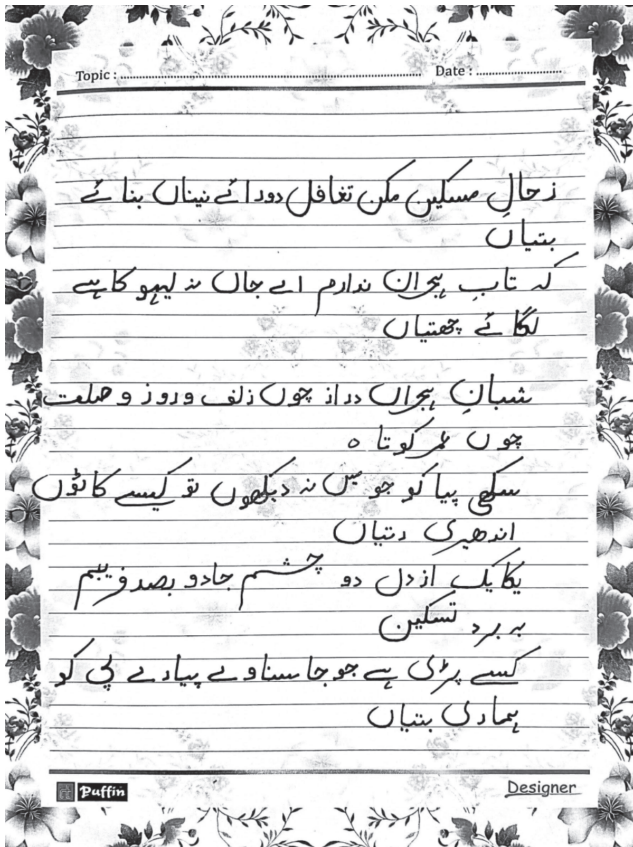 Topic : Date :
زحالِ مسکیں مکن تغافل دورائے نیناں بنائے
بتیاں
کہ تابِ ہجراں ندارم اے جاں نہ لیہو کاہے
لگائے چھتیاں
شبانِ ہجراں دراز چوں زلف و روز وصلت
چوں عمر کوتاہ
سکھی پیا کو جو میں نہ دیکھوں تو کیسے کاٹوں
اندھیری رتیاں
یکایک از دل دو چشم جادو بصد فریبم
بہ برد تسکین
کسے پڑی ہے جو جا سناوے پیارے پی کو
ہماری بتیاں
Puffin Designer